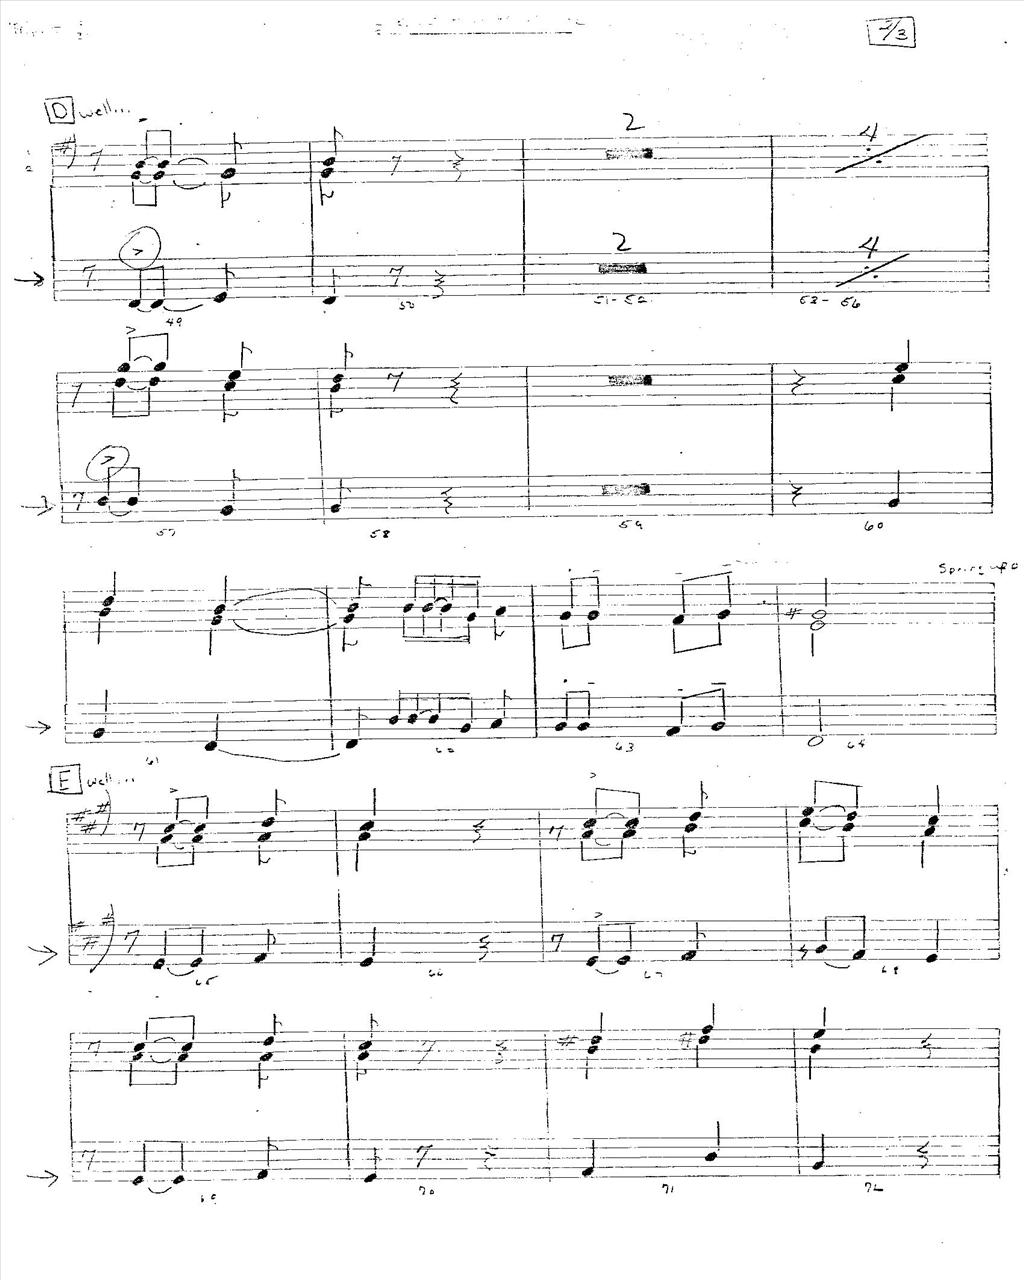 2/3
D well...
2 4
2 4
49 50 51-52 53-56
57 58 59 60
61 62 63 64
E well...
65 66 67 68
69 70 71 72